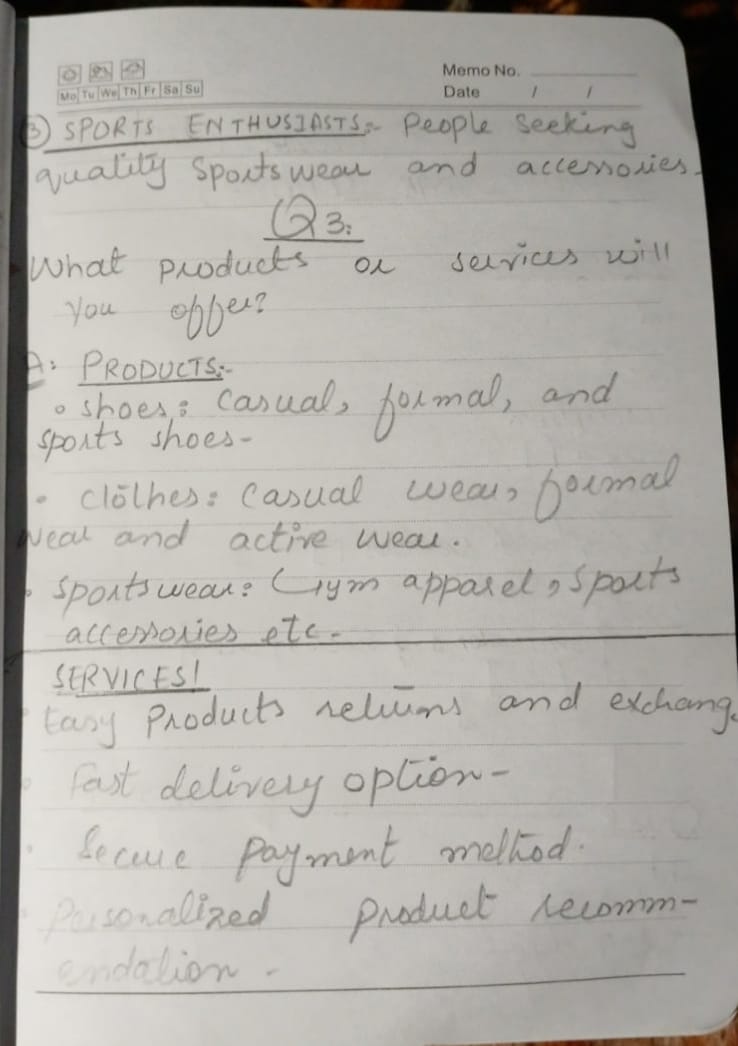 Memo No.
Mo Tu We Th Fr Sa Su
Date / /
③ SPORTS ENTHUSIASTS:- People seeking
quality Sportswear and accessories.
Q3:
What products or services will
you offer?
A: PRODUCTS:-
• shoes: Casual, formal, and
sports shoes-
• Clothes: Casual wear, formal
wear and active wear.
• Sportswear: Gym apparel, Sports
accessories etc-
SERVICES!
• Easy Products returns and exchang.
• Fast delivery option-
• Secure payment method.
• Personalized product recomm-
endation -